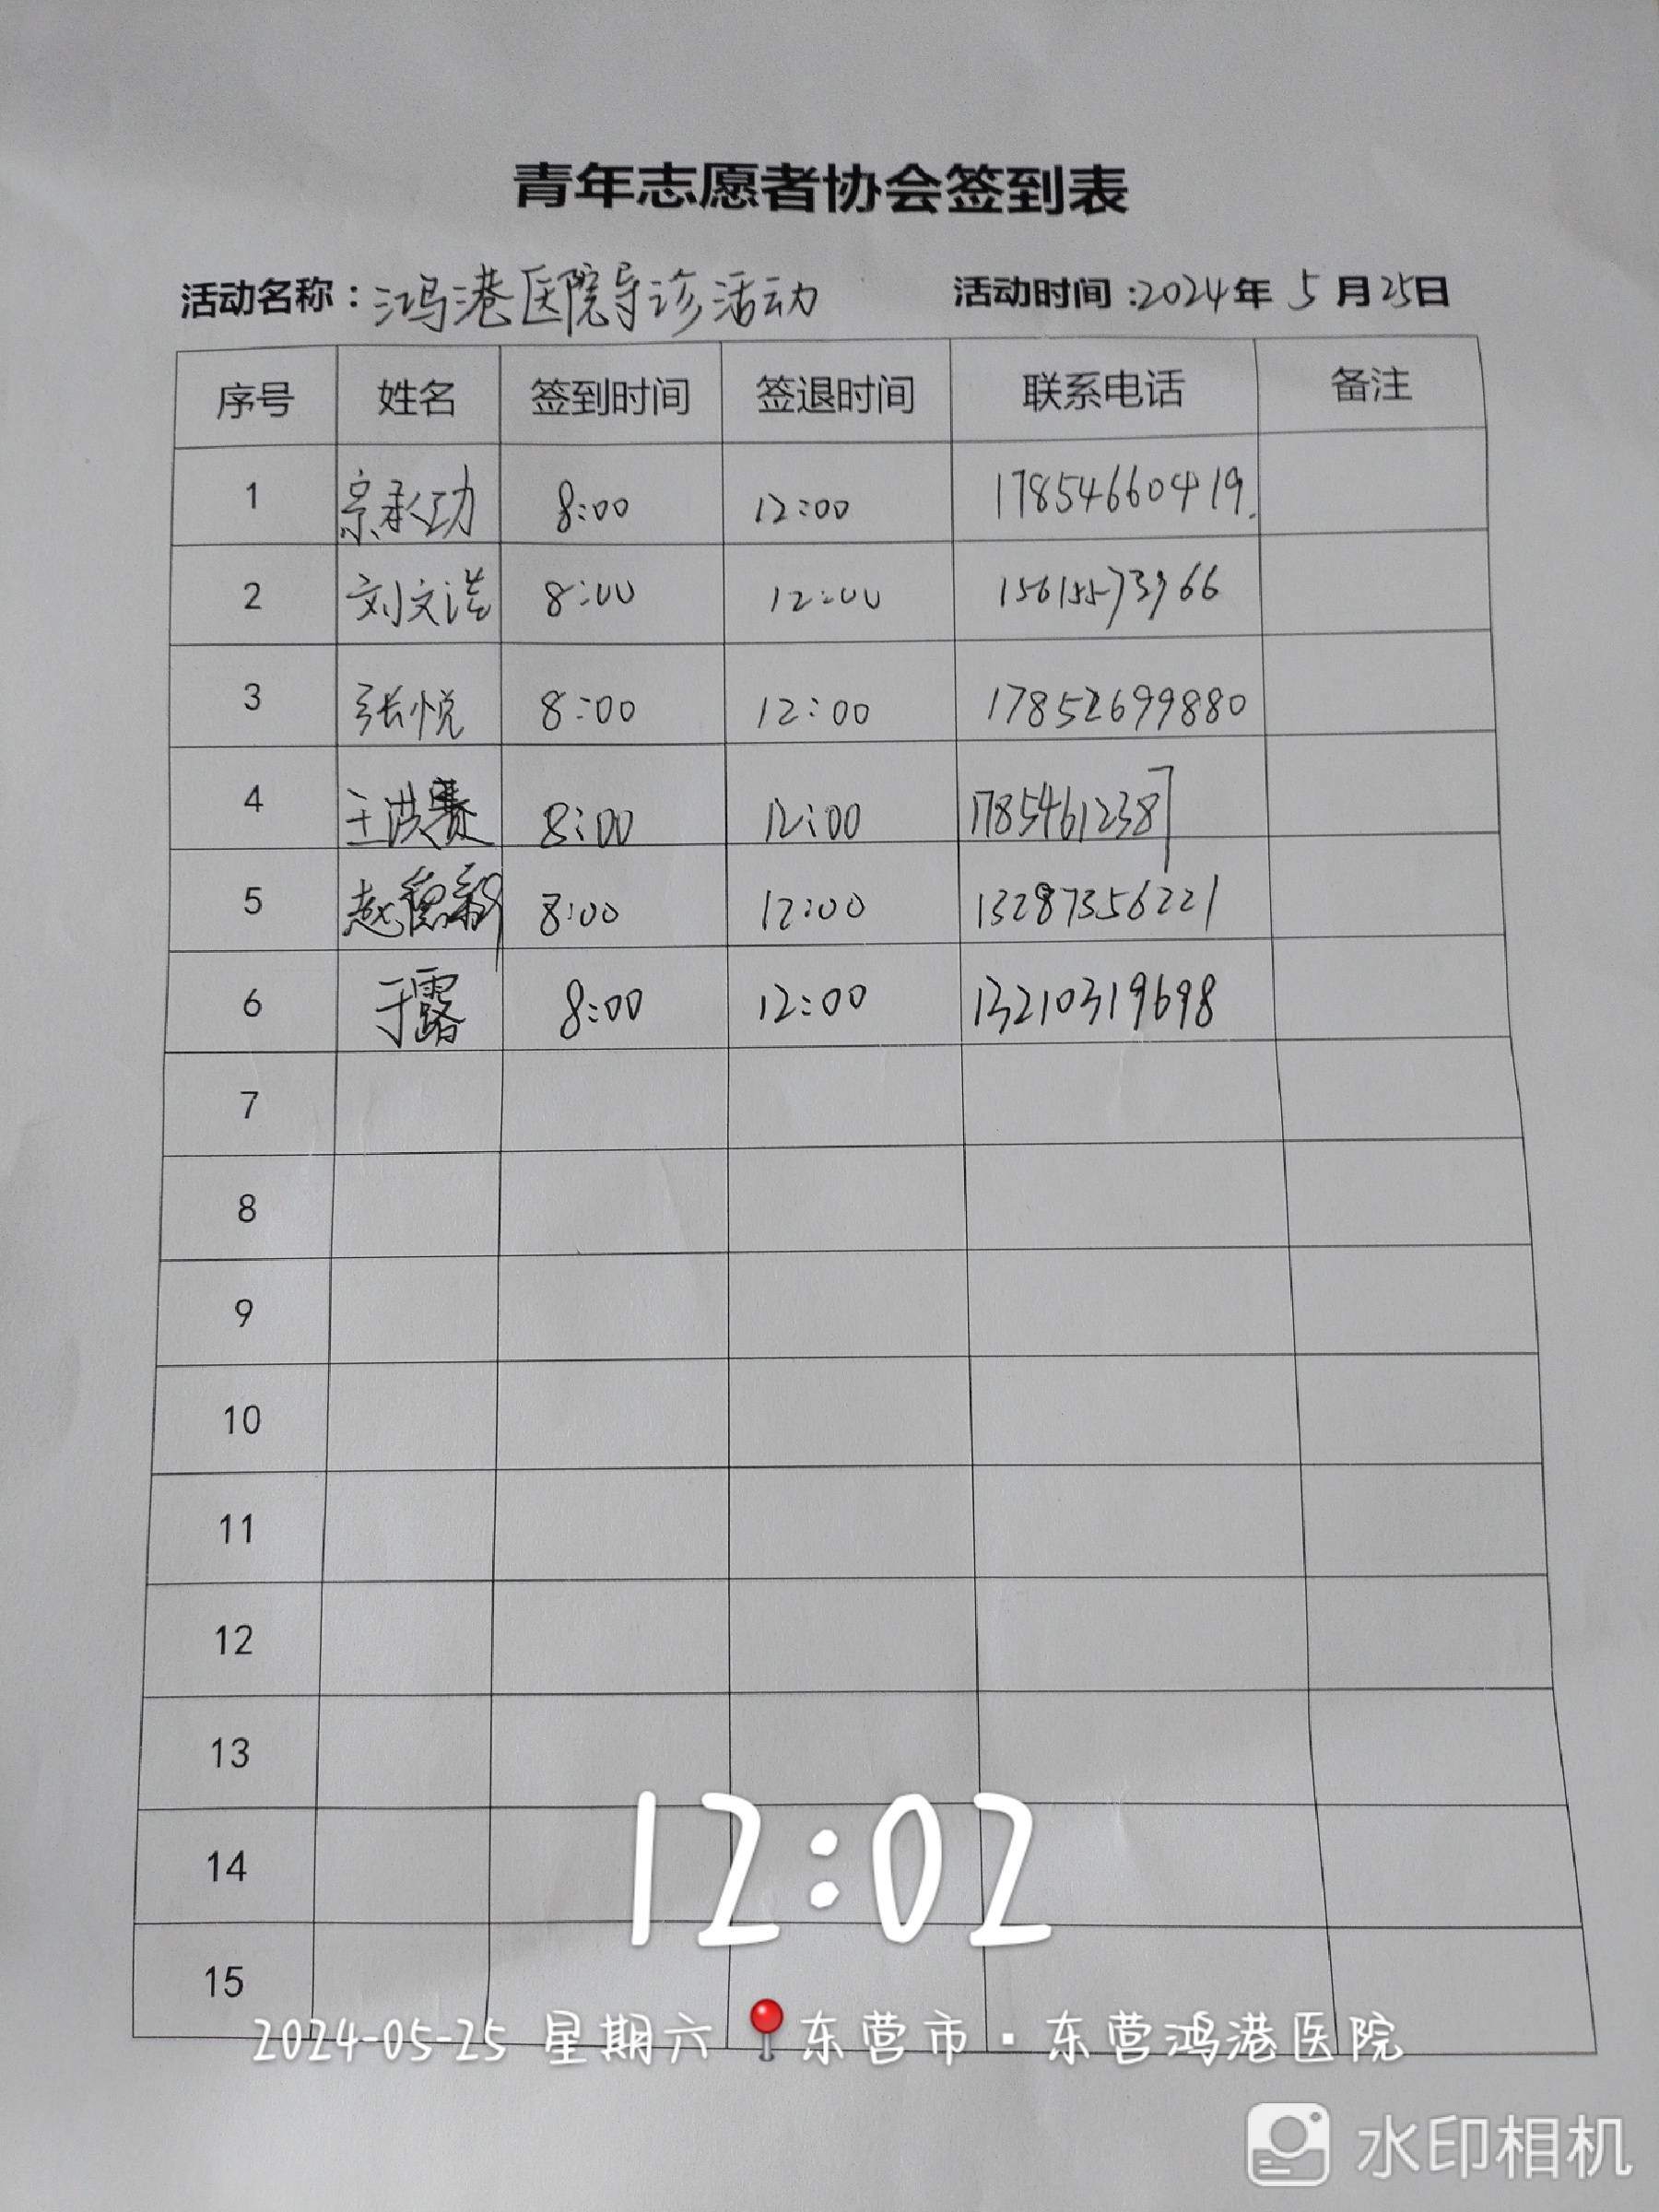 青年志愿者协会签到表
活动名称：鸿港医院导诊活动 活动时间：2024年 5月25日
序号 姓名 签到时间 签退时间 联系电话 备注
1 宗承功 8:00 12:00 17854660419.
2 刘文浩 8:00 12:00 15615573966
3 张悦 8:00 12:00 17852699880
4 王洪赛 8:00 12:00 17854612387
5 赵 8:00 12:00 13287356221
6 于露 8:00 12:00 13210319698
7
8
9
10
11
12
13
14
15
12:02
2024-05-25 星期六 东营市·东营鸿港医院
水印相机